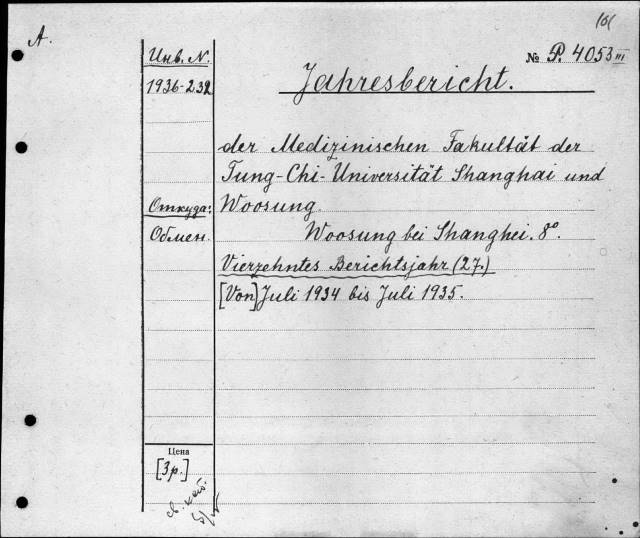 A.
Инв. N.
1936-232
№ P. 4053 III
Jahresbericht.
der Medizinischen Fakultät der
Tung-Chi-Universität Shanghai und
Откуда: Woosung.
Обмен. Woosung bei Shanghei. 8°.
Vierzehntes Berichtsjahr (27.)
[Von] Juli 1934 bis Juli 1935.
Цена
[3 р.]